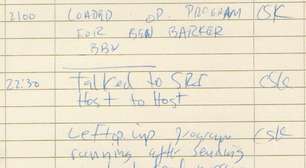 2100 LOADED OP. PROGRAM CSK
FOR BEN BARKER
BBN
22:30 Talked to SRI CSK
Host to Host
Left op. imp program CSK
running after sending